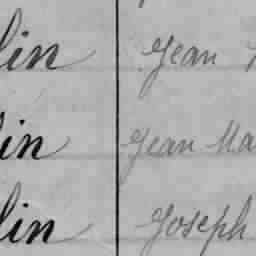 lin Jean
lin Jean Ma
lin Joseph